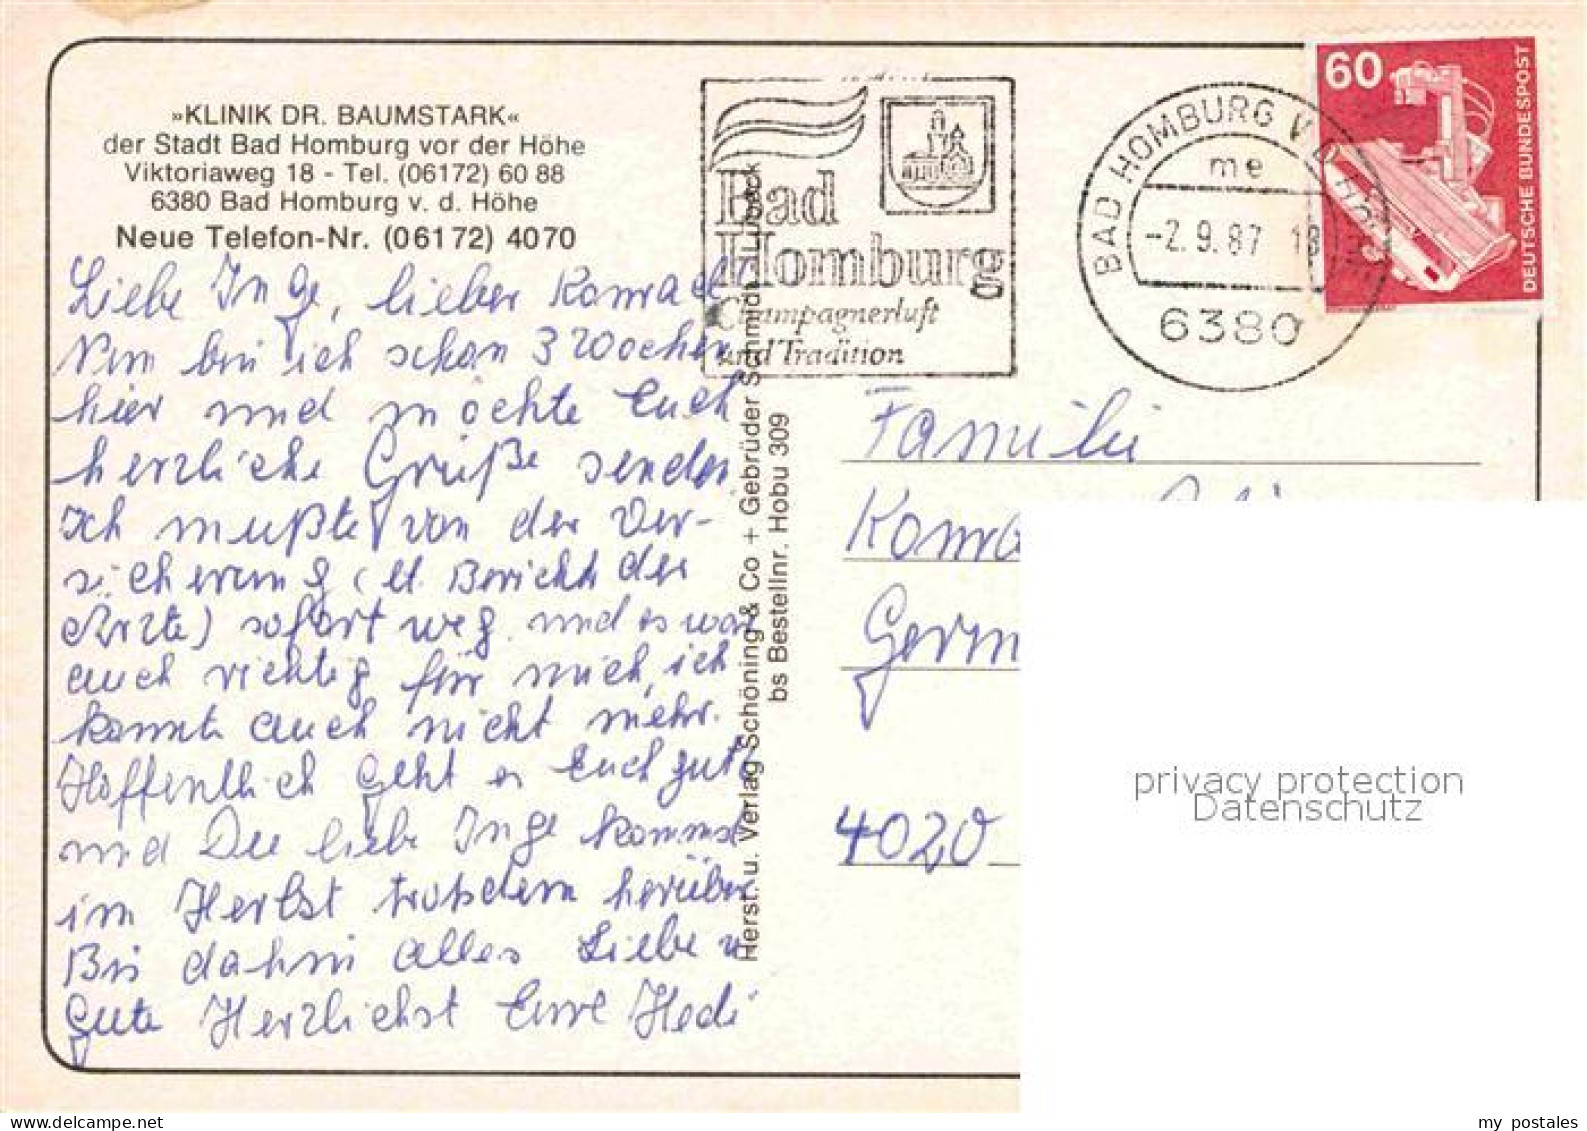 »KLINIK DR. BAUMSTARK«
der Stadt Bad Homburg vor der Höhe
Viktoriaweg 18 - Tel. (06172) 60 88
6380 Bad Homburg v. d. Höhe
Neue Telefon-Nr. (06172) 4070
Liebe Inge, lieber Konrad
Nun bin ich schon 3 Wochen
hier und möchte Euch
herzliche Grüße senden
Ich mußte von der Ver-
sicherung (lt. Bericht der
Ärzte) sofort weg und es war
auch richtig für mich, ich
konnte auch nicht mehr.
Hoffentlich geht es Euch gut
und Du liebe Inge kommst
im Herbst trotzdem herüber
Bis dahin alles Liebe u
Gute Herzlichst Eure Hedi
Herst. u. Verlag Schöning & Co + Gebrüder Schmidt, Lübeck
bs Bestellnr. Hobu 309
Bad
Homburg
Champagnerluft
und Tradition
BAD HOMBURG V D HÖHE
me
-2.9.87 18
6380
60
DEUTSCHE BUNDESPOST
Familie
Germ
4020
privacy protection
Datenschutz
my postales